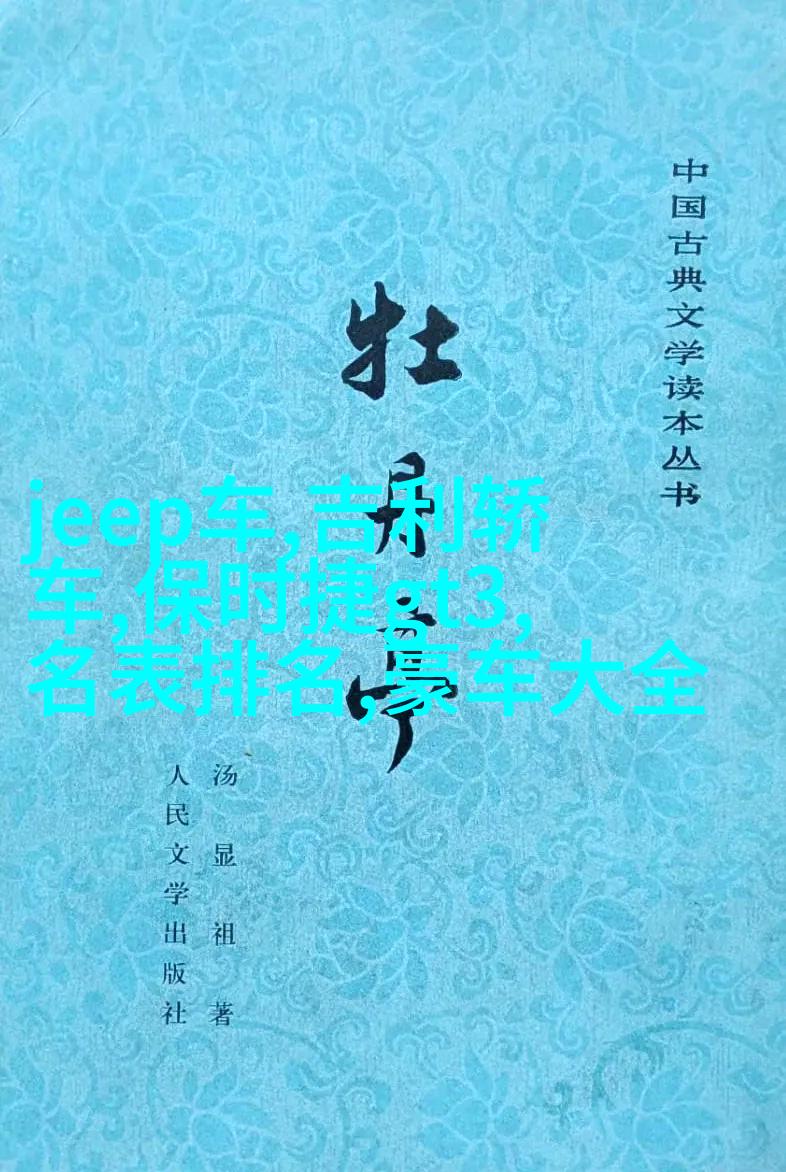 中国古典文学读本丛书
牡丹亭
jeep车,吉利轿
车,保时捷gt3,
名表排名,豪车大全
汤显祖著
人民文学出版社